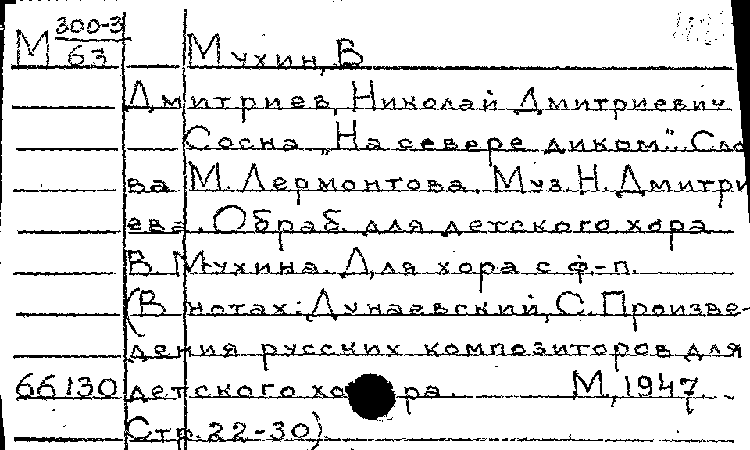 М 300-3/63 Мухин, В
Дмитриев, Николай Дмитриевич
Сосна „На севере диком". Сло
ва М. Лермонтова. Муз. Н. Дмитри
ева. Обраб. для детского хора
В. Мухина. Для хора с ф.-п.
(В нотах: Дунаевский, С. Произве-
дения русских композиторов для
66130 детского хора. М., 1947
Стр. 22-30)